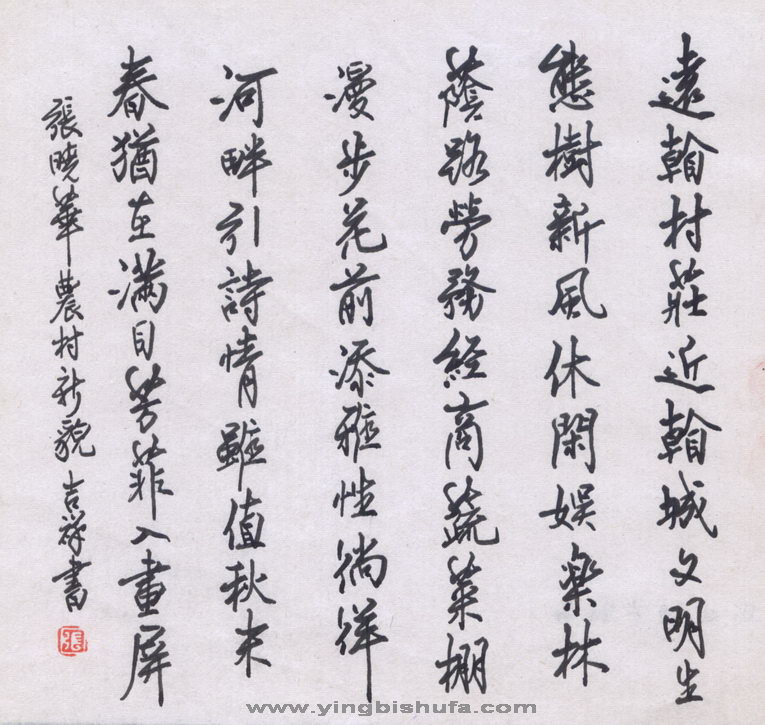 遠翰村莊近翰城文明生
態樹新風休閑娛樂林
蔭路勞務經商蔬菜棚
漫步花前添雅性徜徉
河畔引詩情雖值秋末
春猶在滿目芳菲入畫屏
張曉華農村新貌吉祥書
張
www.yingbishufa.com